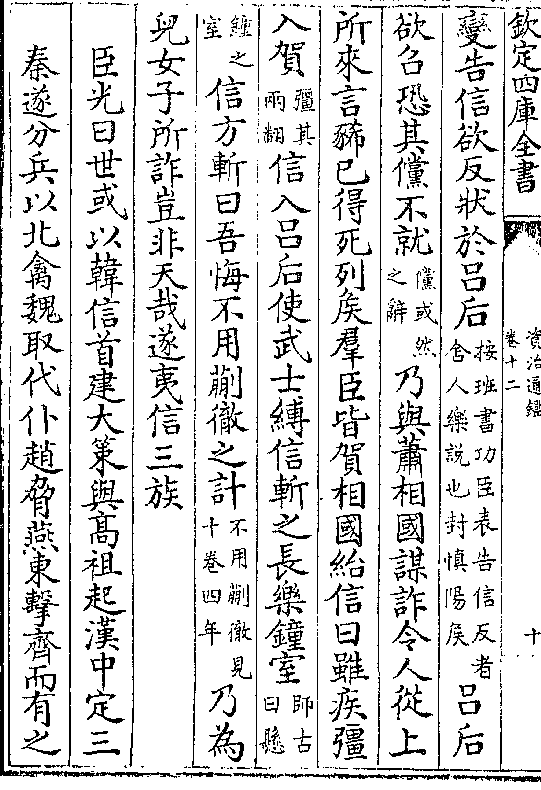 欽定四庫全書
資治通鑑
卷十二
十
變告信欲反狀於吕后按班書功臣表告信反者舍人樂説也封慎陽矦吕后
欲召恐其儻不就儻或然之辭乃與蕭相國謀詐令人從上
所來言豨已得死列矦羣臣皆賀相國紿信曰雖疾彊
入賀彊其兩翻信入吕后使武士縛信斬之長樂鐘室師古曰懸
鐘之室信方斬曰吾悔不用蒯徹之計不用蒯徹見十卷四年乃為
兒女子所詐豈非天哉遂夷信三族
臣光曰世或以韓信首建大策與髙祖起漢中定三
秦遂分兵以北禽魏取代仆趙脅燕東擊齊而有之